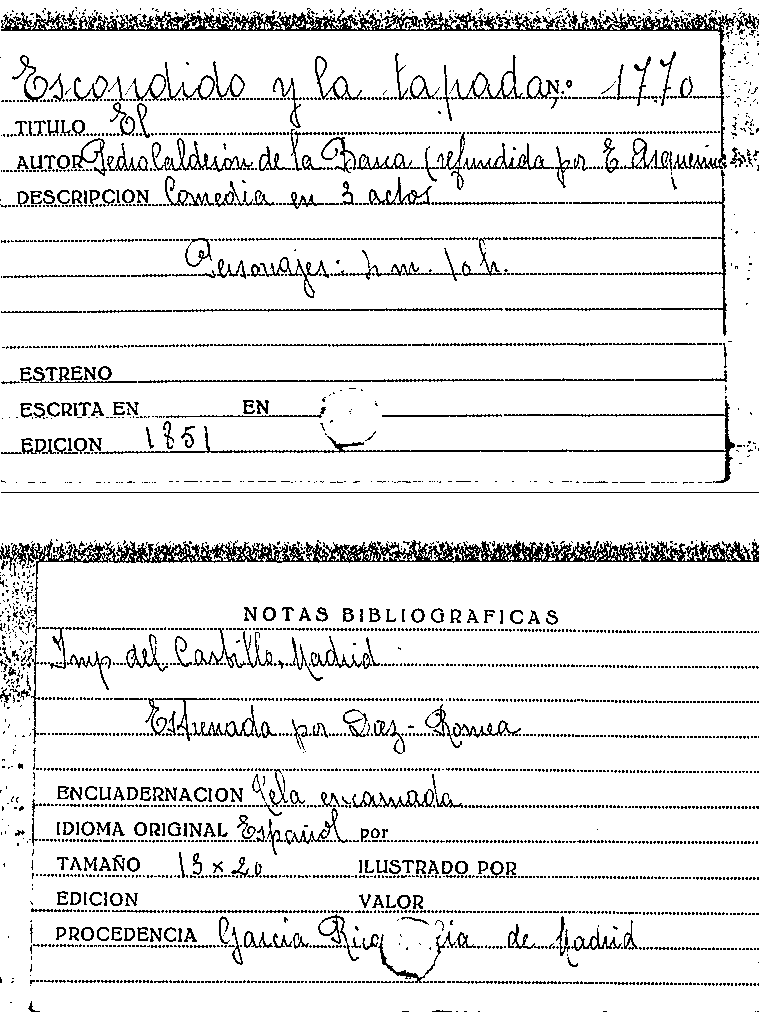 Escondido y la tapada, N.º 1770
TITULO El
AUTOR Pedro Calderón de la Barca (refundida por E. Asquerino
DESCRIPCION Comedia en 3 actos
Personajes: 4 m. 10 h.
ESTRENO
ESCRITA EN EN
EDICION 1851
NOTAS BIBLIOGRAFICAS
Imp del Castillo, Madrid
Estrenada por Díez-Romea
ENCUADERNACION Tela encarnada
IDIOMA ORIGINAL Español por
TAMAÑO 13 x 20 ILUSTRADO POR
EDICION VALOR
PROCEDENCIA García Rico de Madrid